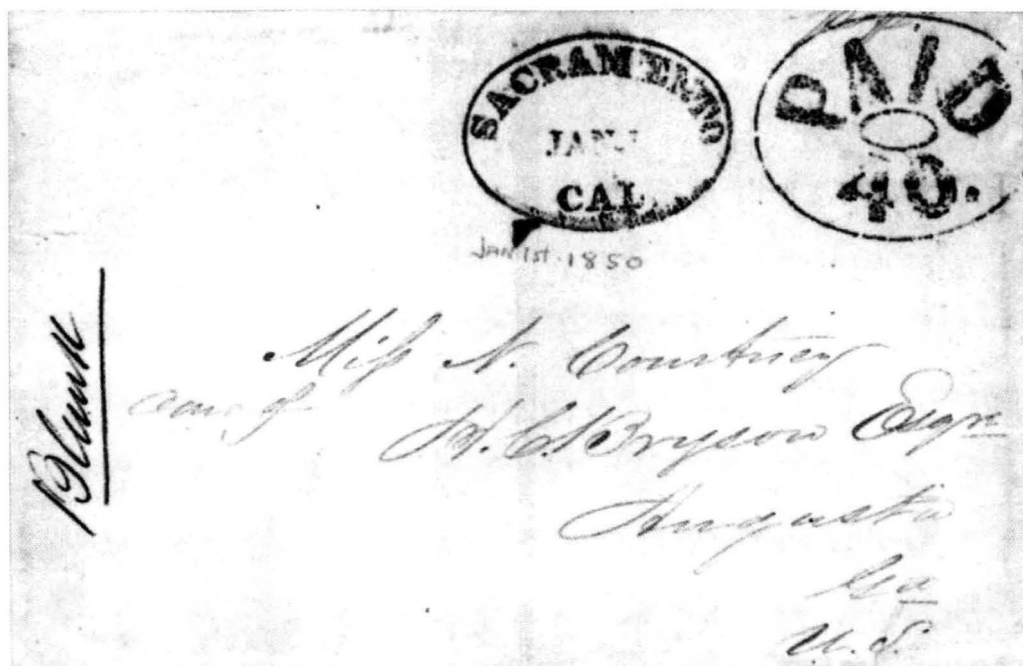 SACRAMENTO
JAN. 1
CAL.
PAID
40.
Jan 1st. 1850
Miss N. Courtney
Care of
H. C. Bryson Esqre
Augusta
Ga
U. S.